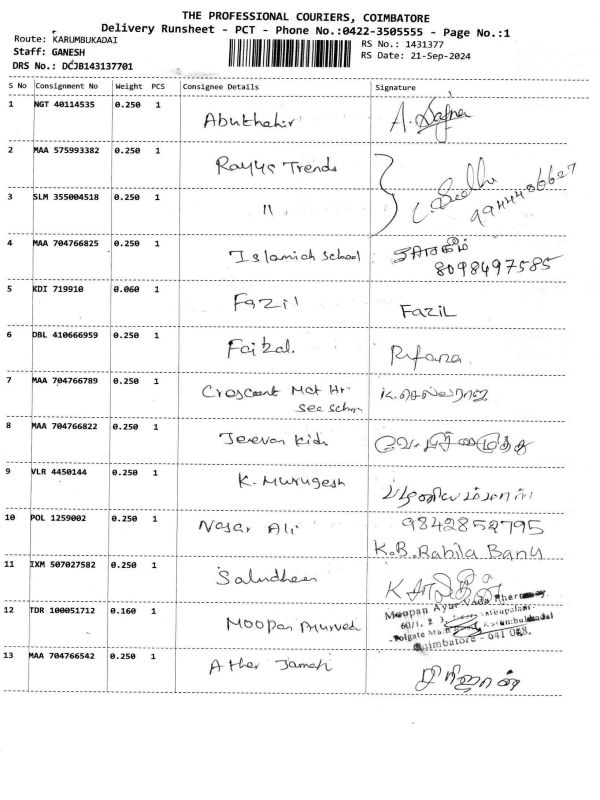 THE PROFESSIONAL COURIERS, COIMBATORE
Delivery Runsheet - PCT - Phone No.:0422-3505555 - Page No.:1
Route: KARUMBUKADAI
Staff: GANESH
DRS No.: DCJB143137701
RS No.: 1431377
RS Date: 21-Sep-2024
S No Consignment No Weight PCS Consignee Details Signature
1 NGT 40114535 0.250 1 Abuthahir
2 MAA 575993382 0.250 1 Trends
3 SLM 355004518 0.250 1 11 9944486627
4 MAA 704766825 0.250 1 Islamich School
8098497585
5 KDI 719910 0.060 1 Fazil FAZIL
6 DBL 410666959 0.250 1 Faizal Rifana
7 MAA 704766789 0.250 1 Crescent Mat Hr K.செல்வராஜ்
sec school
8 MAA 704766822 0.250 1 Jeevan Kids
9 VLR 4450144 0.250 1 K. Murugesh
10 POL 1259002 0.250 1 Nasar Ali 9842852795
K.B. Rahila Banu
11 IXM 507027582 0.250 1 Saludheen
12 TDR 100051712 0.160 1 Moopan Ayurved Moopan Ayur Veda Pharmacy
Polgate Main Road, Karumbukkadai
Coimbatore - 641 008.
13 MAA 704766542 0.250 1 Ather Jamath